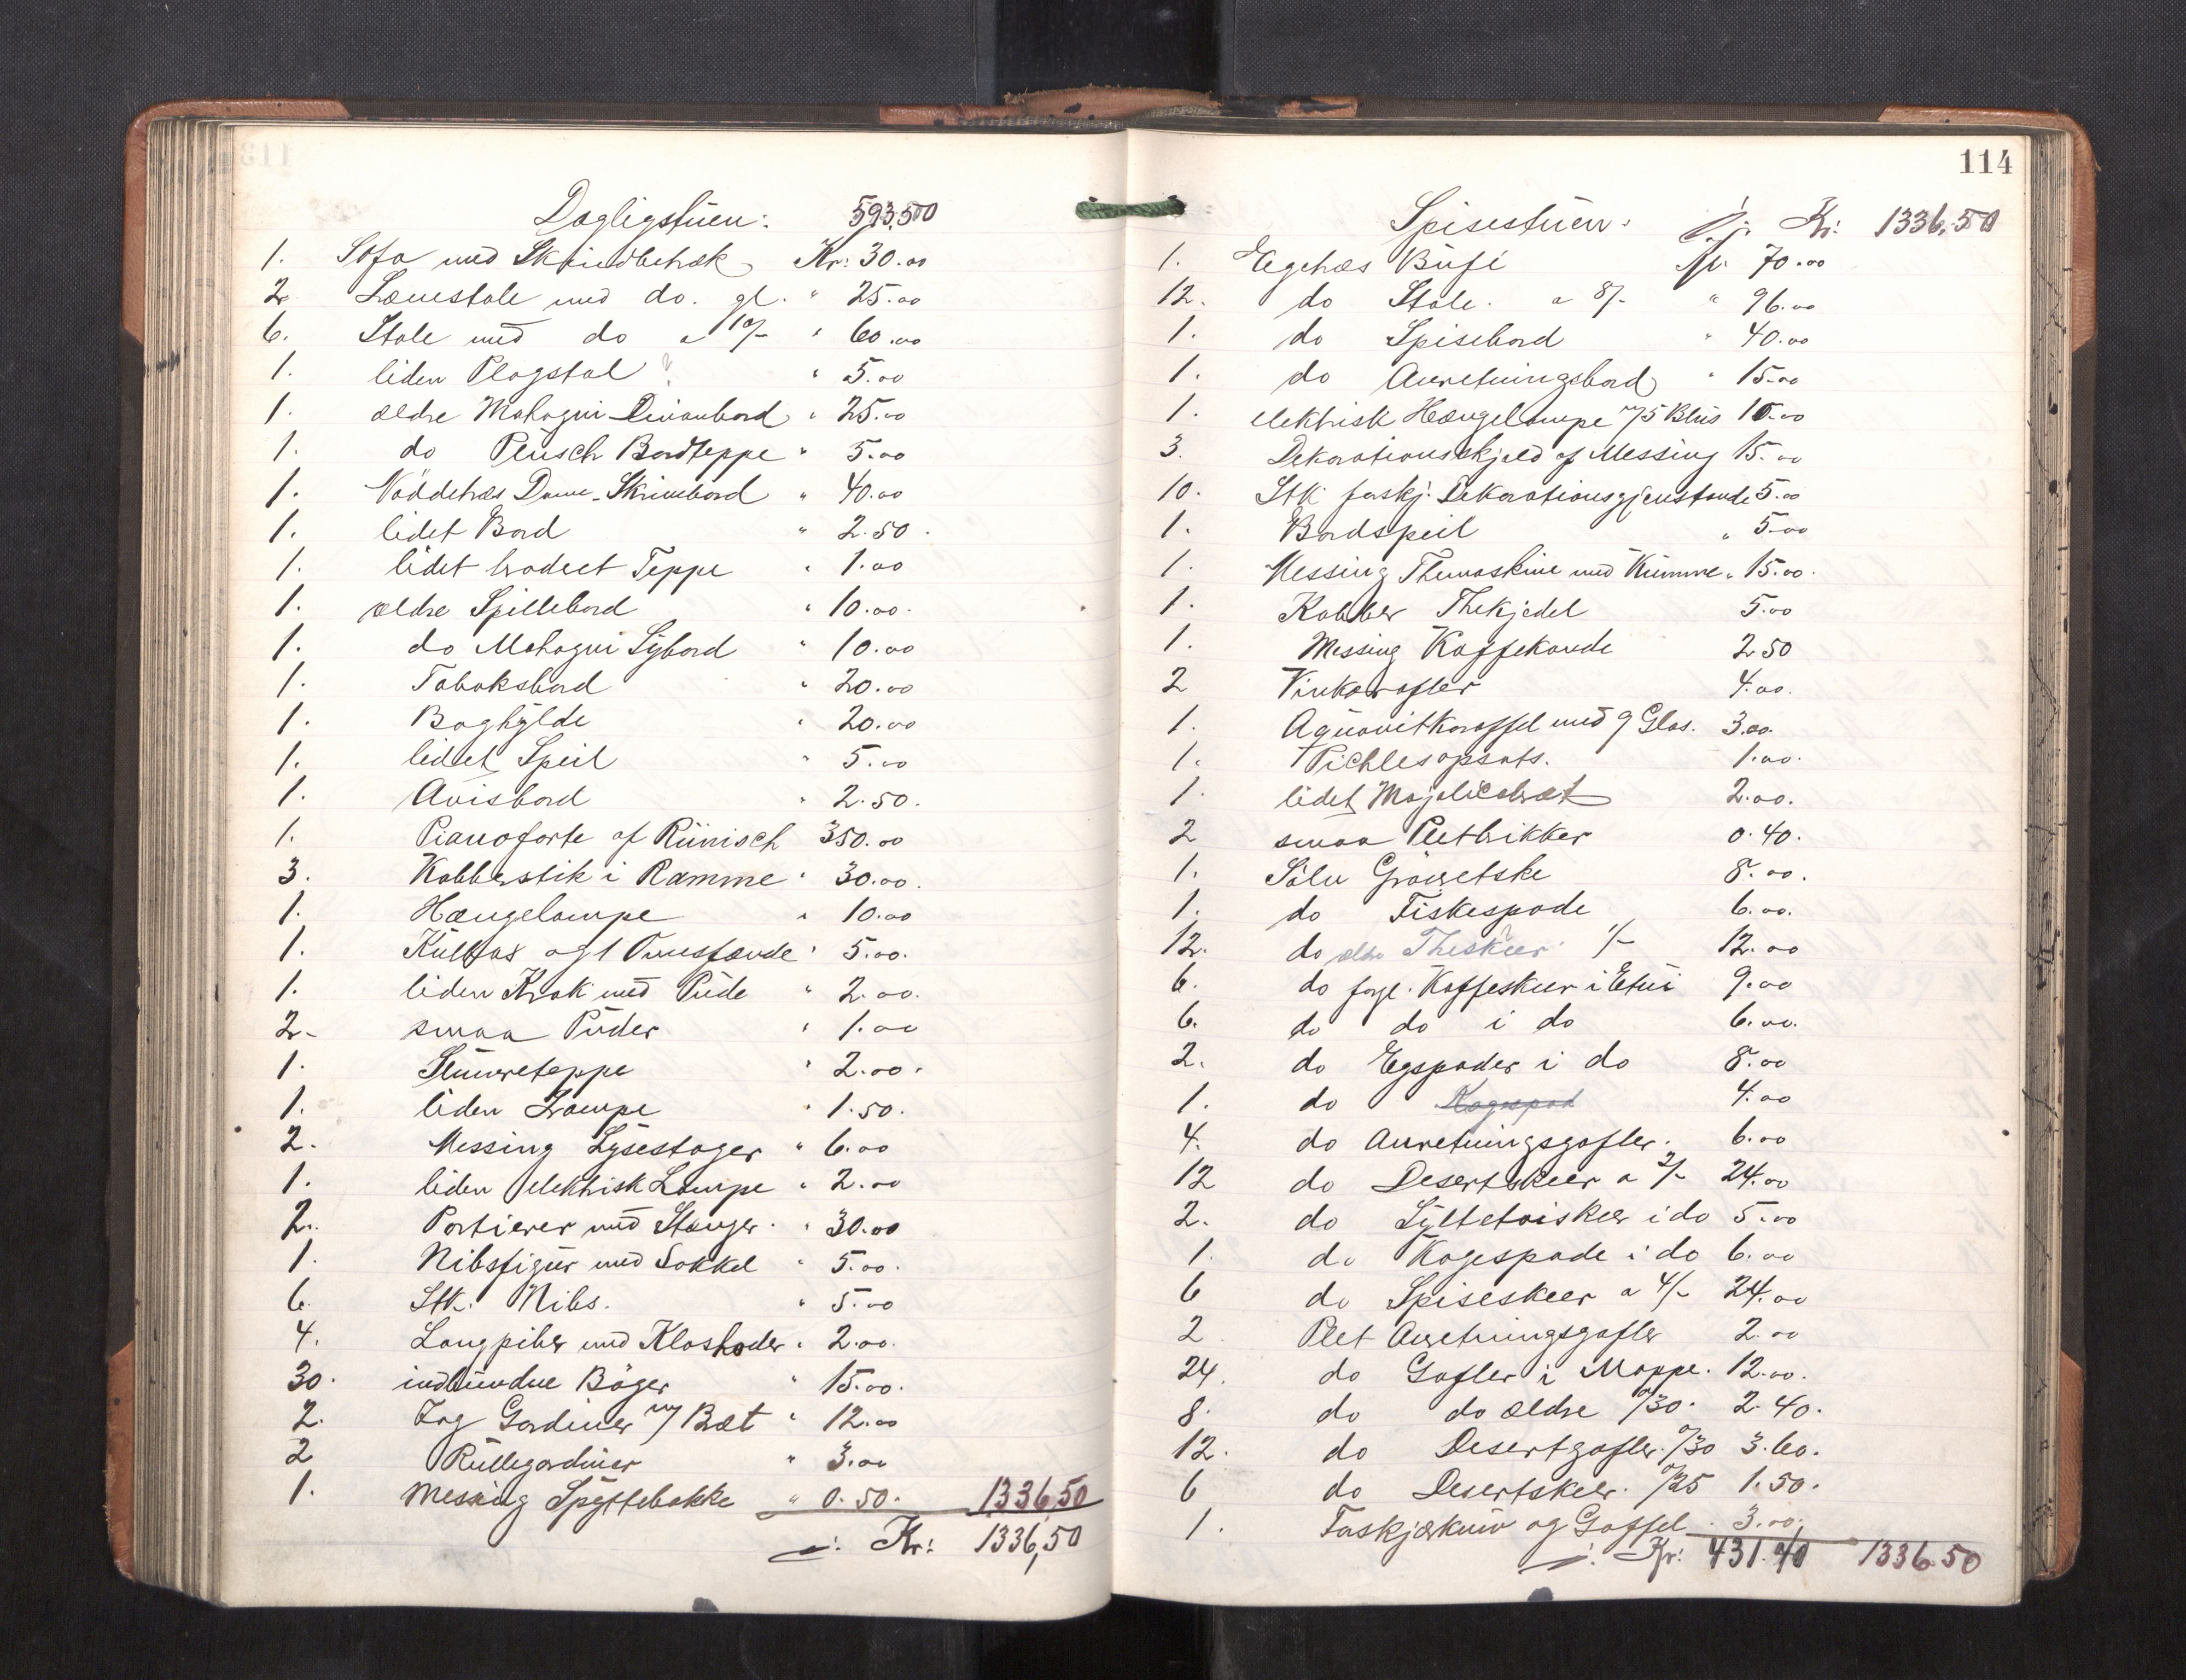 Dagligstuen: 593,50
1. Sofa med Skindbetræk Kr: 30.00
2. Lænestole med do. gl. " 25.00
6. Stole med do a 10/- " 60.00
1. liden Plagstol " 5.00
1. ældre Mahogni Divanbord " 25.00
1. do Plüsch Bordteppe " 5.00
1. Nöddetræs Dame-Skrivebord " 40.00
1. lidet Bord " 2.50.
1. lidet broderet Teppe " 1.00
1. ældre Spillebord " 10.00.
1. do Mahogni Sybord " 10.00
1. Tobaksbord " 20.00
1. Boghylde " 20.00
1. lidet Speil " 5.00
1. Avisbord " 2.50.
1. Pianoforte af Rünisch 350.00
3. Kobberstik i Ramme " 30.00.
1. Hængelampe " 10.00
1. Kulkas og 1 Ovnsfænde " 5.00.
1. liden Krak med Pude " 2.00.
2. smaa Puder " 1.00
1. Stuveteppe " 2.00.
1. liden Lampe " 1.50.
2. Messing Lysestager " 6.00
1. liden elektrisk Lampe " 2.00
2. Portierer med Stanger. " 30.00
1. Nibsfigur med Sokkel " 5.00.
6. Stk. Nibs. " 5.00
4. Langpiber med " 2.00.
30. indbundne Böger " 15.00.
2. Fag Gardiner m/ Bræt " 12.00
2 Rullegardiner " 3.00
1. Messing Spyttebakke " 0.50. 1336,50
Kr: 1336,50
114
Spisestuen: Kr: 1336,50
1. Egetræs Büfé Kr 70.00
12. do Stole. a 8/- " 96.00
1. do Spisebord " 40.00
1. do Anretningsbord " 15.00
1. elektrisk Hængelampe m/5 Blus 10.00
3. Dekorationsskjold af Messing 15.00
10. Stk forskj. Dekorationsgjenstande 5.00
1. Bordspeil " 5.00
1. Messing Themaskine med Kumme " 15.00.
1. Kobber Thekjedel 5.00
1. Messing Kaffekande 2.50
2 Vinkarafler 4.00.
1. Aquavitkaraffel med 9 Glas. 3.00.
1. Pichlesopsats. 1.00.
1. lidet Majolicabræt 2.00.
2 smaa Pletbrikker 0.40.
1. Sölv Grödetske 8.00.
1. do Fiskespade 6.00.
12. do ældre Theskeer 1/- 12.00
6. do forgl. Kaffeskeer i Etui 9.00
6. do do i do 6.00.
2. do Egspader i do 8.00
1. do Kagespad 4.00
4. do Anretningsgafler. 6.00
12 do Desertskeer a 2/- 24.00
2. do Syltetöiskeer i do 5.00
1. do Kagespade i do 6.00
6 do Spiseskeer a 4/- 24.00
2 Plet Anretningsgafler 2.00
24. do Gafler i Mappe. 12.00.
8. do do ældre "/30. 2.40.
12. do Desertgafler. "/30 3.60.
6 do Desertskeer. "/25 1.50.
1. Forskjærkniv og Gaffel. 3.00.
Kr: 431.40 1336.50